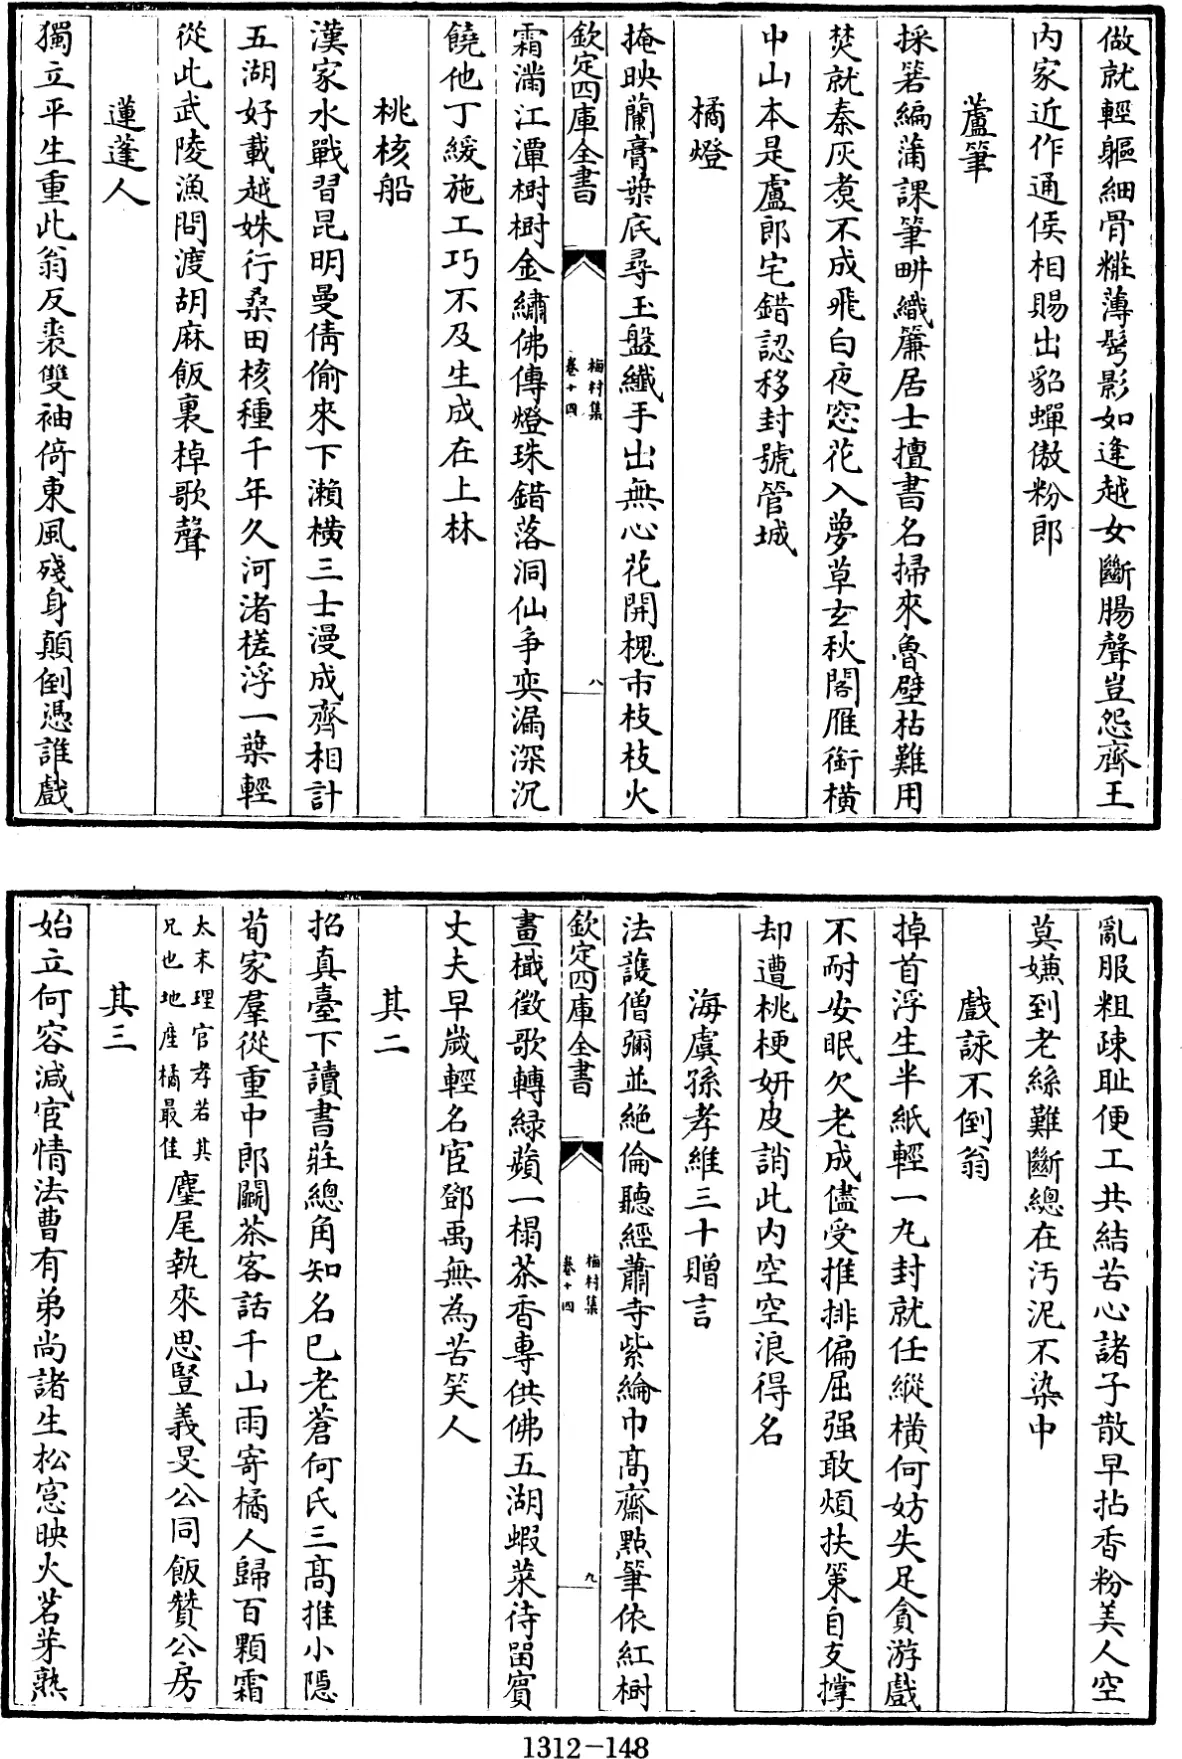 做就輕軀細骨粧薄鬢影如逢越女斷腸聲豈怨齊王
内家近作通侯相賜出貂蟬傲粉郎
蘆筆
採箬編蒲課筆畊織簾居士擅書名掃來魯壁枯難用
焚就秦灰煑不成飛白夜窓花入夢草玄秋閣雁銜橫
中山本是盧郎宅錯認移封號管城
橘燈
掩映蘭膏葉底尋玉盤纖手出無心花開槐市枝枝火
欽定四庫全書
梅村集
卷十四
八
霜滿江潭樹樹金繡佛傳燈珠錯落洞仙爭奕漏深沉
饒他丁緩施工巧不及生成在上林
桃核船
漢家水戰習昆明曼倩偷來下瀨橫三士漫成齊相計
五湖好載越姝行桑田核種千年久河渚槎浮一葉輕
從此武陵漁問渡胡麻飯裏棹歌聲
蓮蓬人
獨立平生重此翁反裘雙袖倚東風殘身顛倒憑誰戲
亂服粗疎耻便工共結苦心諸子散早拈香粉美人空
莫嫌到老絲難斷總在汚泥不染中
戲詠不倒翁
掉首浮生半紙輕一丸封就任縱橫何妨失足貪游戲
不耐安眠欠老成儘受推排偏屈强敢煩扶策自支撐
却遭桃梗妍皮誚此内空空浪得名
海虞孫孝維三十贈言
法護僧彌並絶倫聽經蕭寺紫綸巾高齋點筆依紅樹
欽定四庫全書
梅村集
卷十四
九
畫檝徵歌轉緑蘋一榻茶香專供佛五湖蝦菜待留賓
丈夫早歲輕名宦鄧禹無為苦笑人
其二
招真臺下讀書莊總角知名已老蒼何氏三高推小隠
荀家羣從重中郎鬭茶客話千山雨寄橘人歸百顆霜
太末理官孝若其
兄也地産橘最佳
麈尾執來思豎義旻公同飯贊公房
其三
始立何容減宦情法曹有弟尚諸生松窓映火茗芽熟
1312-148